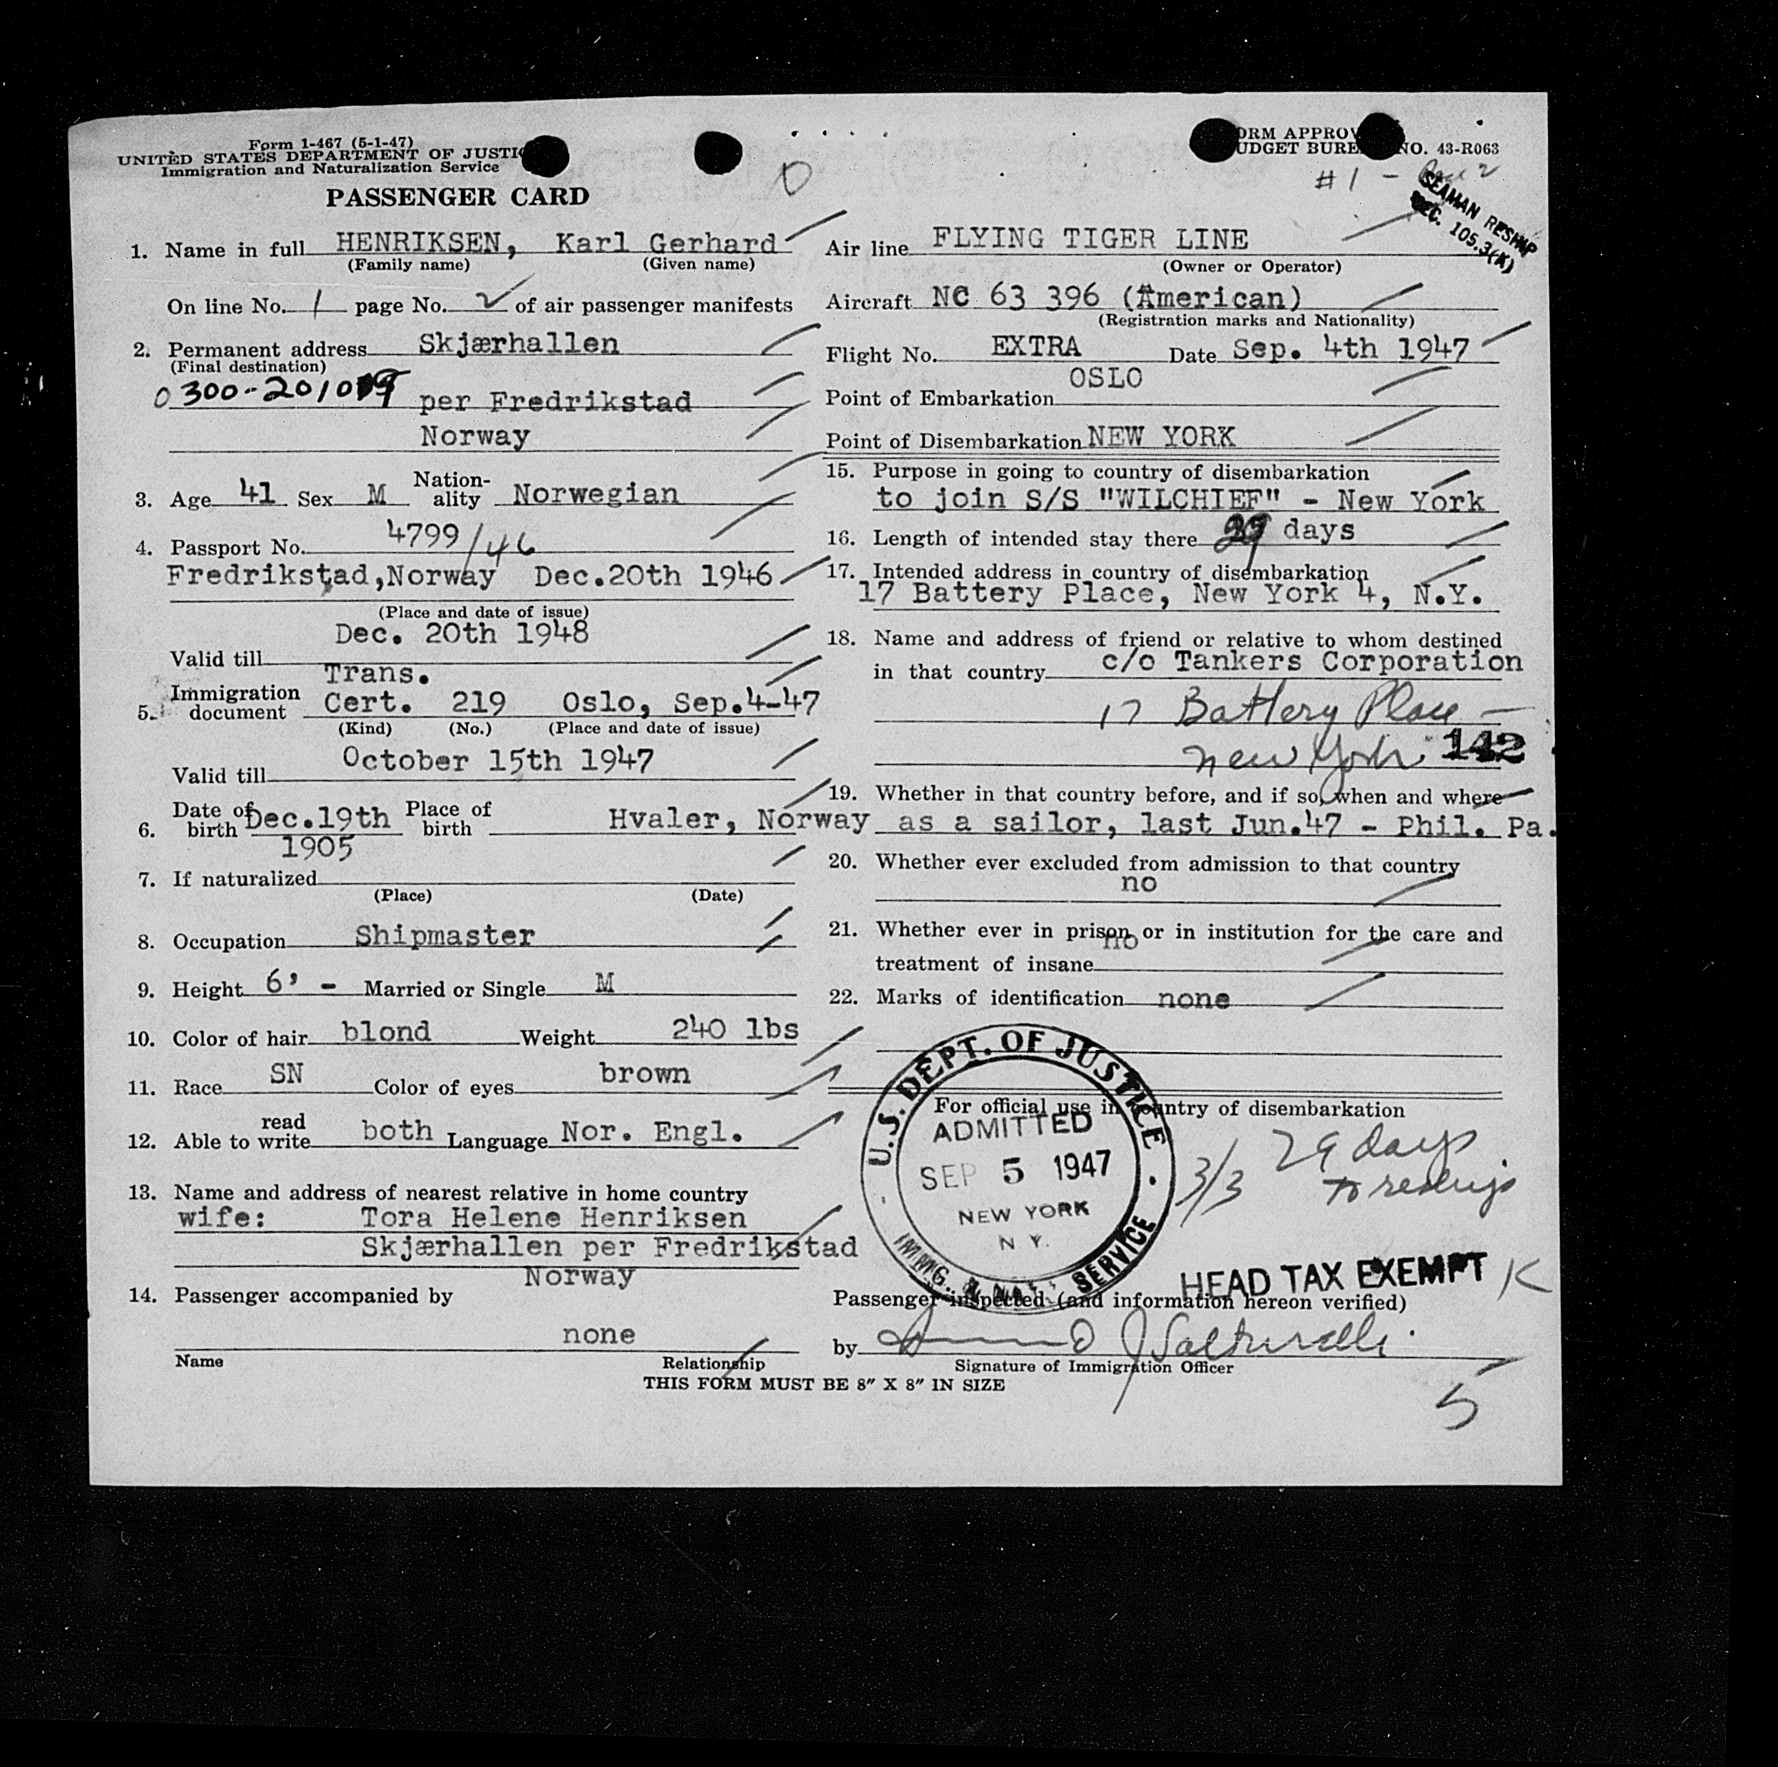 Form 1-467 (5-1-47)
UNITED STATES DEPARTMENT OF JUSTI
Immigration and Naturalization Service
PASSENGER CARD
ORM APPROV
UDGET BURE NO. 43-R063
# 1 -
SEAMAN RESHIP
SEC. 105.3(K)
0
1. Name in full HENRIKSEN, Karl Gerhard
(Family name) (Given name)
On line No. 1 page No. 2 of air passenger manifests
2. Permanent address Skjærhallen
(Final destination)
per Fredrikstad
Norway
3. Age 41 Sex M Nation-ality Norwegian
4. Passport No. 4799/46
Fredrikstad,Norway Dec.20th 1946
(Place and date of issue)
Dec. 20th 1948
Valid till
Trans.
5. Immigration document Cert. 219 Oslo, Sep.4-47
(Kind) (No.) (Place and date of issue)
Valid till October 15th 1947
6. Date of birth Dec.19th Place of birth Hvaler, Norway
1905
7. If naturalized
(Place) (Date)
8. Occupation Shipmaster
9. Height 6' - Married or Single M
10. Color of hair blond Weight 240 lbs
11. Race SN Color of eyes brown
12. Able to read write both Language Nor. Engl.
13. Name and address of nearest relative in home country
wife: Tora Helene Henriksen
Skjærhallen per Fredrikstad
Norway
14. Passenger accompanied by
none
Name Relationship
Air line FLYING TIGER LINE
(Owner or Operator)
Aircraft NC 63 396 (American)
(Registration marks and Nationality)
Flight No. EXTRA Date Sep. 4th 1947
OSLO
Point of Embarkation
Point of Disembarkation NEW YORK
15. Purpose in going to country of disembarkation
to join S/S "WILCHIEF" - New York
16. Length of intended stay there 29 days
17. Intended address in country of disembarkation
17 Battery Place, New York 4, N.Y.
18. Name and address of friend or relative to whom destined
in that country c/o Tankers Corporation
17 Battery Place
New York 142
19. Whether in that country before, and if so, when and where
as a sailor, last Jun.47 - Phil. Pa.
20. Whether ever excluded from admission to that country
no
21. Whether ever in prison or in institution for the care and
no
treatment of insane
22. Marks of identification none
For official use in country of disembarkation
U.S. DEPT. OF JUSTICE
ADMITTED
SEP 5 1947
NEW YORK
N Y.
IMMG. & NAT. SERVICE
3/3 29 days
to reship
HEAD TAX EXEMPT K
Passenger inspected (and information hereon verified)
by
Signature of Immigration Officer
THIS FORM MUST BE 8" X 8" IN SIZE
5